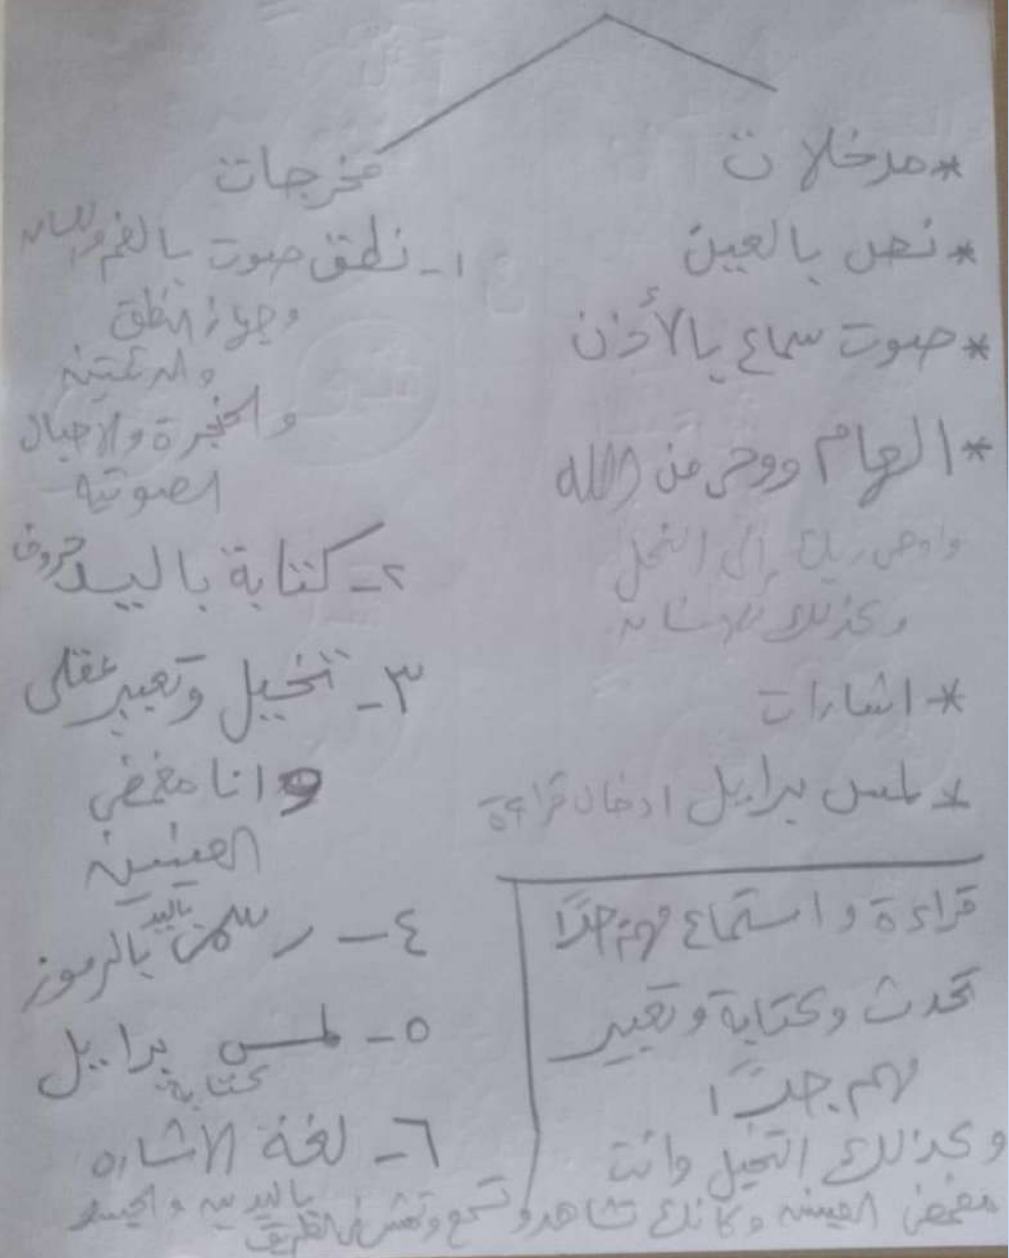 * مدخلات
* نص بالعين
* صوت سماع بالأذن
* الهام ووحى من الله
واوحى ربك إلى النحل
وكذلك
* اشارات
* لمس برايل ادخال قراءة
قراءة و استماع مهم جدًا
تحدث وكتابة و تعبير
مهم جدًا
وكذلك التخيل وانت
مغمض العينين وكانك تشاهد وتسمع وتمشى فى الطريق
مخرجات
١- نطق صوت بالفم واللسان
وجهاز النطق
والرئتين
والحنجرة والاحبال
الصوتية
٢- كتابة باليد حروف
٣- تخيل وتعبير عقلى
وانا مغمض
العينين
٤- رسمت باليد بالرموز
٥- لمس برايل
كتابة
٦- لغة الاشاره
باليدين